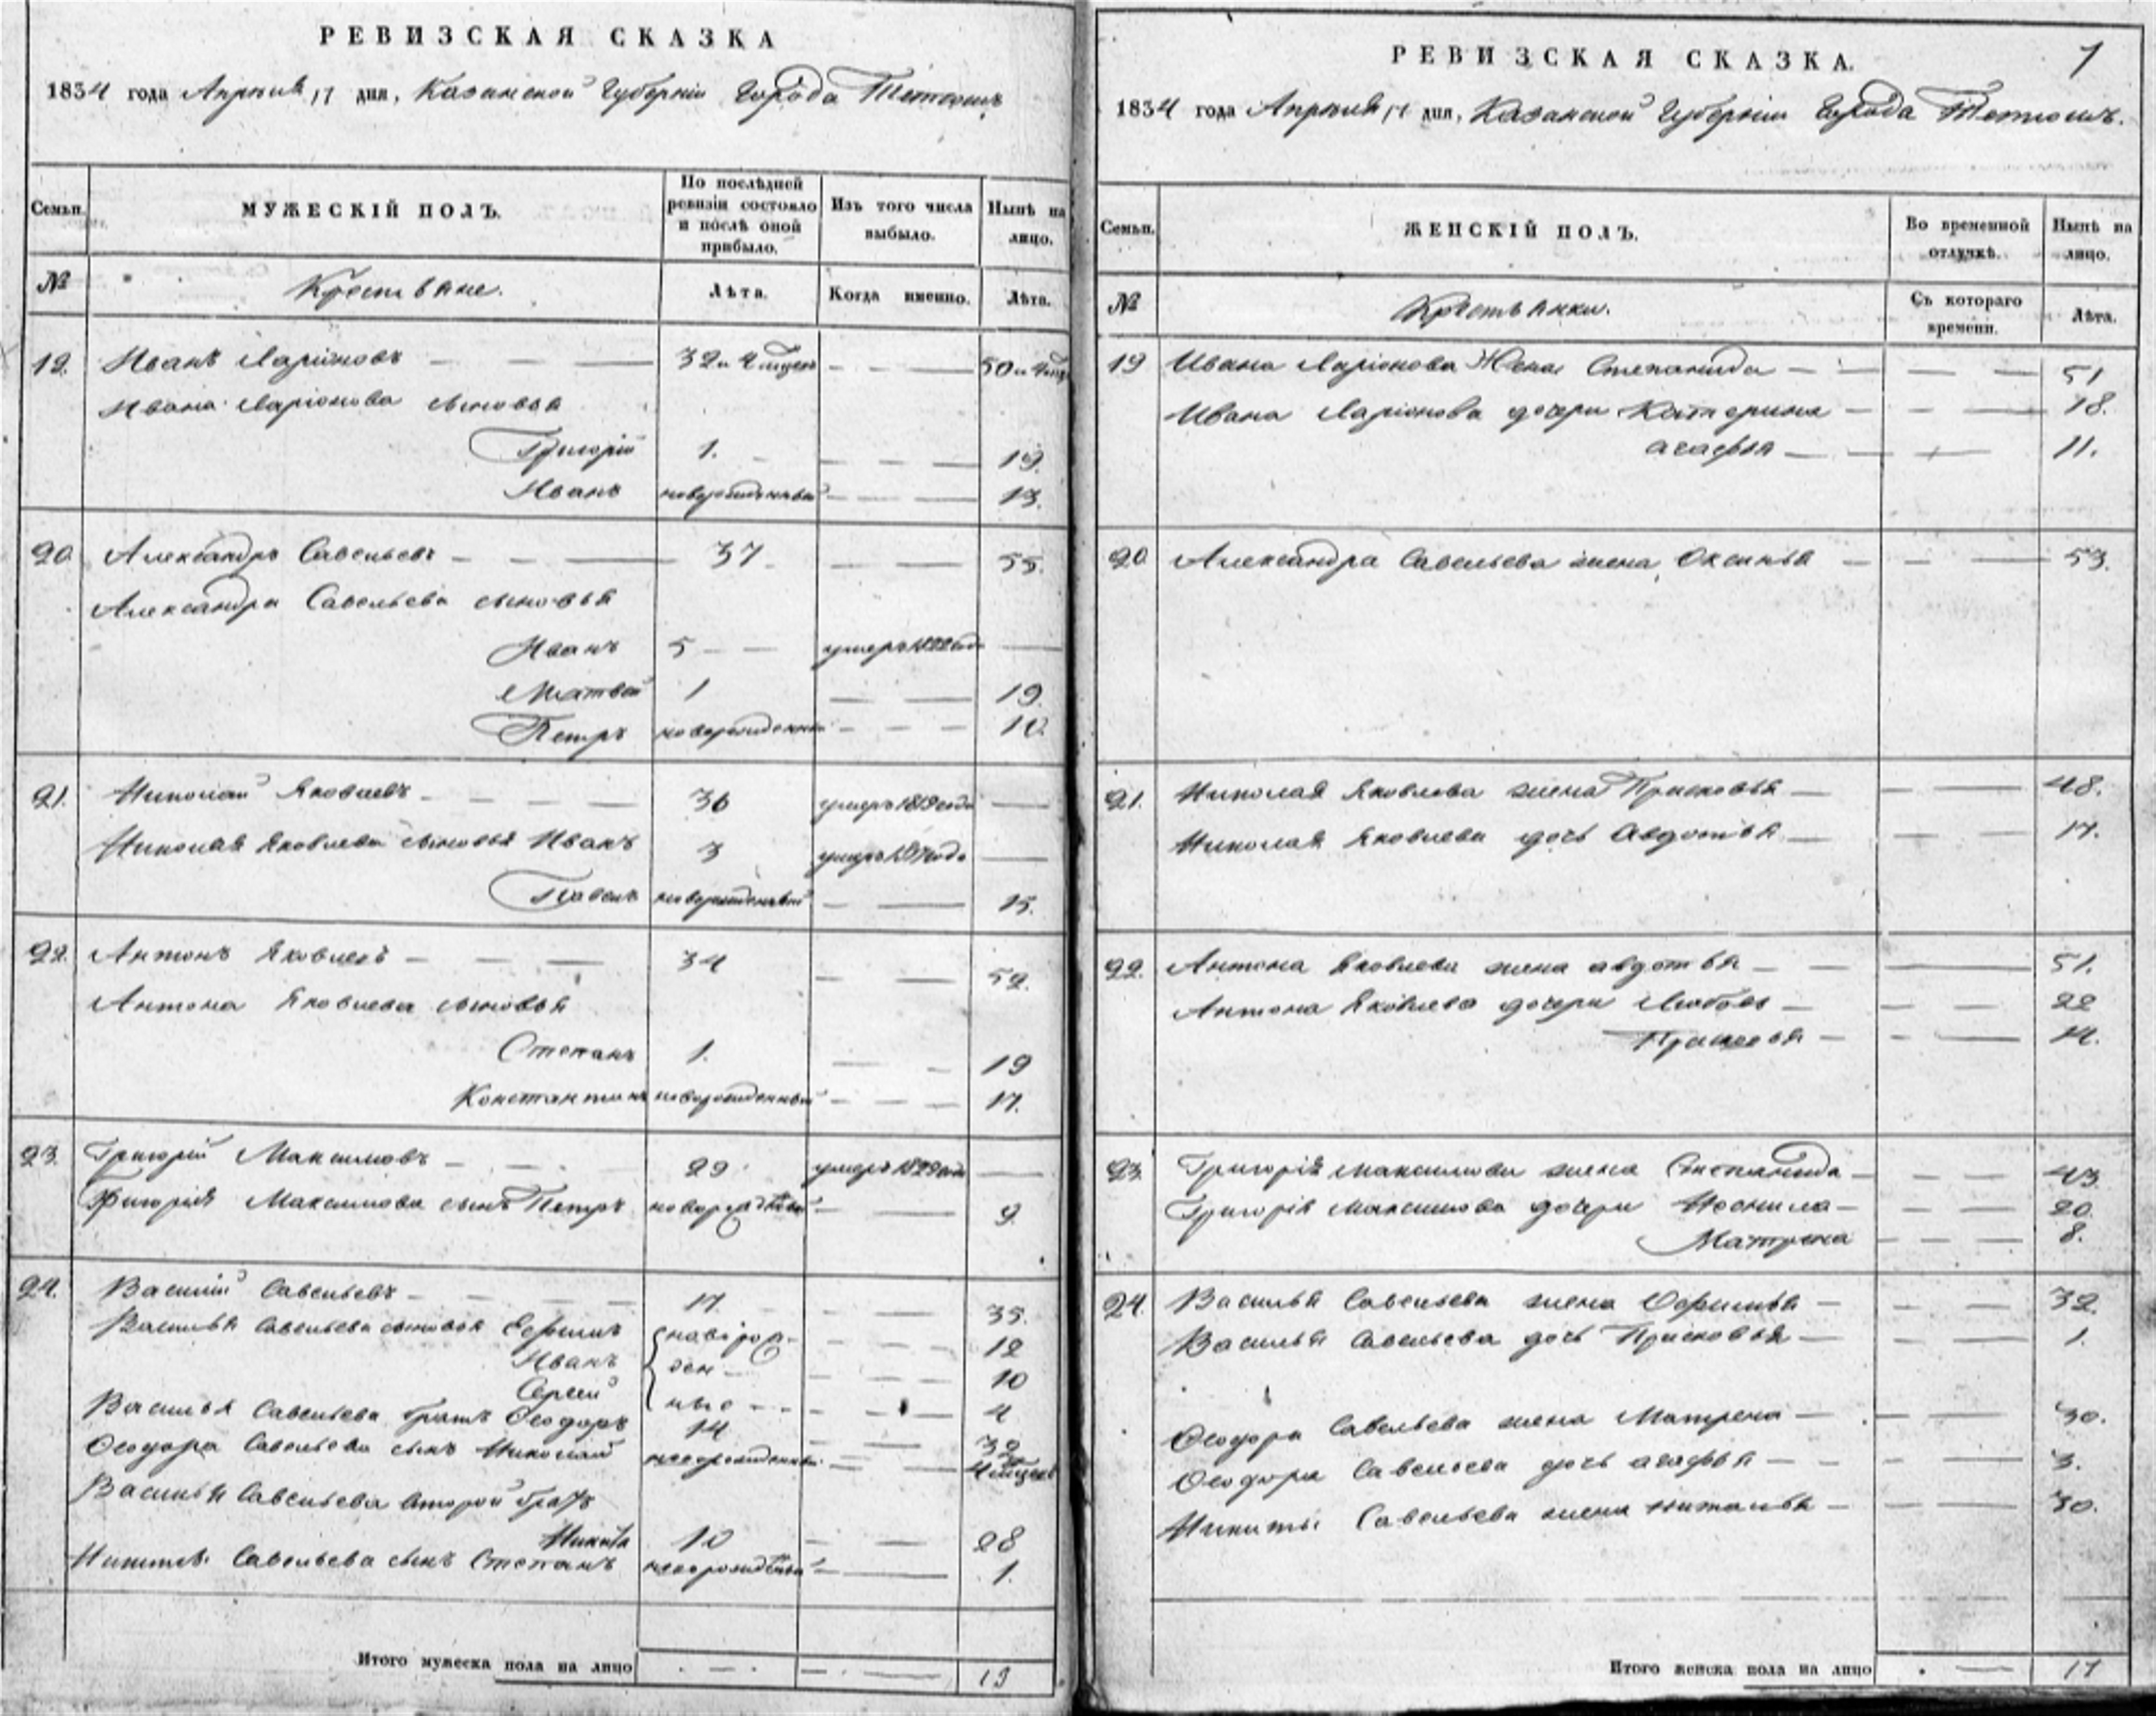 РЕВИЗСКАЯ СКАЗКА
1834 года Апрѣля 17 дня, Казанской Губерніи Города Тетюшъ
Семьи. МУЖЕСКІЙ ПОЛЪ. По послѣдней ревизіи состояло и послѣ оной прибыло. Изъ того числа выбыло. Нынѣ на лицо.
№ Крестьяне. Лѣта. Когда именно. Лѣта.
19. Иванъ Ларіоновъ 32 и 4 мѣсец 50 и 4 мѣс
Ивана Ларіонова сыновья
Григорій 1. 19.
Иванъ новорожденный 13.
20. Александръ Савельевъ 37 55.
Александра Савельева сыновья
Иванъ 5 умеръ 1822 года
Матвей 1 19.
Петръ новорожденный 10.
21. Николай Яковлевъ 36 умеръ 1819 года
Николая Яковлева сыновья Иванъ 3 умеръ года
Павелъ новорожденный 15.
22. Антонъ Яковлевъ 34 52.
Антона Яковлева сыновья
Степанъ 1. 19
Константинъ новорожденный 17.
23. Григорій Максимовъ 29 умеръ 1829 года
Григорія Максимова сынъ Петръ новорожденный 9.
24. Василій Савельевъ 17. 35.
Василья Савельева сыновья Ефимъ новорож- 12
Иванъ ден 10
Сергей ные 4
Василья Савельева братъ Ѳеодоръ 14 32
Ѳеодора Савельева сынъ Николай новорожденный 4 мѣсецъ
Василья Савельева второй братъ
Никита 10 28
Никиты Савельева сынъ Степанъ новорожденный 1.
Итого мужеска пола на лицо 19
РЕВИЗСКАЯ СКАЗКА. 7
1834 года Апрѣля 17 дня, Казанской Губерніи Города Тетюшъ.
Семьи. ЖЕНСКІЙ ПОЛЪ. Во временной отлучкѣ. Нынѣ на лицо.
№ Крестьянки. Съ котораго времени. Лѣта.
19 Ивана Ларіонова Жена Степанида 51
Ивана Ларіонова дочери Катерина 18.
агафья 11.
20 Александра Савельева жена Оксинья 53.
21. Николая Яковлева жена Прасковья 48.
Николая Яковлева дочь Авдотья 17.
22. Антона Яковлева жена авдотья 51.
Антона Яковлева дочери Любовь 22
Прасковья 14.
23. Григорія Максимова жена Степанида 43
Григорія Максимова дочери 20.
Матрена 8.
24. Василья Савельева жена 32.
Василья Савельева дочь Прасковья 1.
Ѳеодора Савельева жена Матрена 30.
Ѳеодора Савельева дочь агафья 3.
Никиты Савельева жена Наталья 30.
Итого женска пола на лицо 17